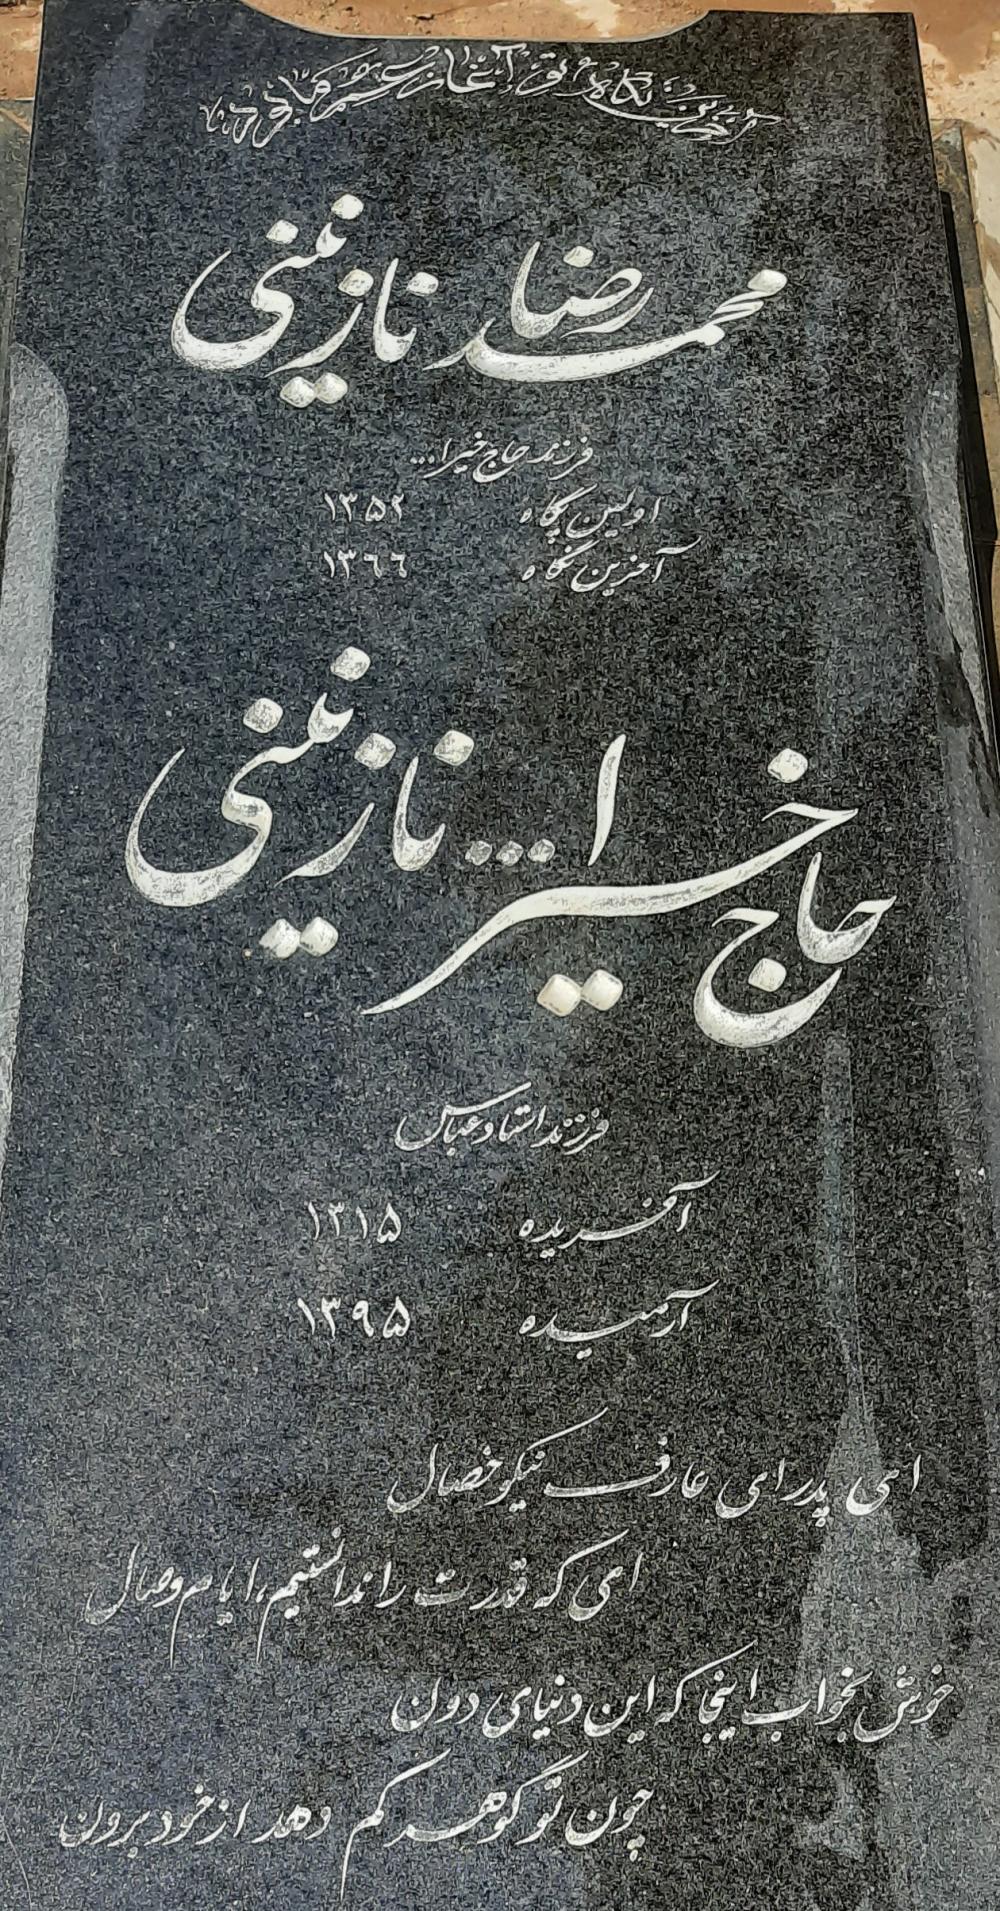 آخرین نگاه تو آغاز غم ما بود
محمدرضا نازنینی
فرزند حاج خیرا...
اولین پگاه ۱۳۵۲
آخرین نگاه ۱۳۶۶
حاج خیرا... نازنینی
فرزند استاد عباس
آفریده ۱۳۱۵
آرمیده ۱۳۹۵
ای پدر ای عارف نیکو خصال
ای که قدرت را ندانستیم، ایام وصال
خوش بخواب اینجا که این دنیای دون
چون تو گوهر کم دهد از خود برون